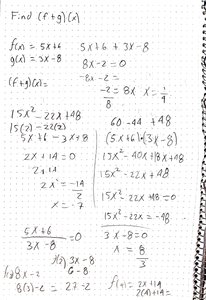 Find (f+g)(x)
f(x) = 5x+6
g(x) = 3x-8
(f+g)(x) =
5x+6 + 3x-8
8x-2=0
-8x -2 =
-2/8 = 8x
15x² -22x+48
15(2) -22(2)
5x+6 -3x+8
2x+14=0
2x = -14/2
x = -7
5x+6/3x-8 = 0
60-44 +48
(5x+6)(3x-8)
15x² -40x+18x+48
15x² -22x+48
15x² -22x+48=0
15x² -22x=-48
3x-8=0
x = 8/3
8x-2
3x-8
6-8
f(x) = 2x+14